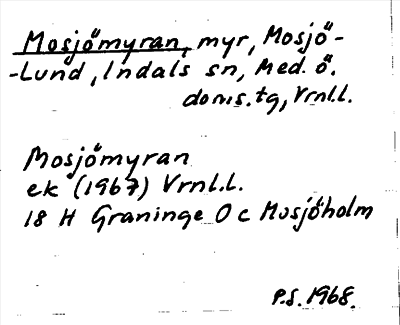 Mosjömyran, myr, Mosjö-
-Lund, Indals sn, Med. ö.
doms.tg, Vrnl.l.
Mosjömyran
ek (1967) Vrnl.l.
18 H Graninge O c Mosjöholm
P.S. 1968.